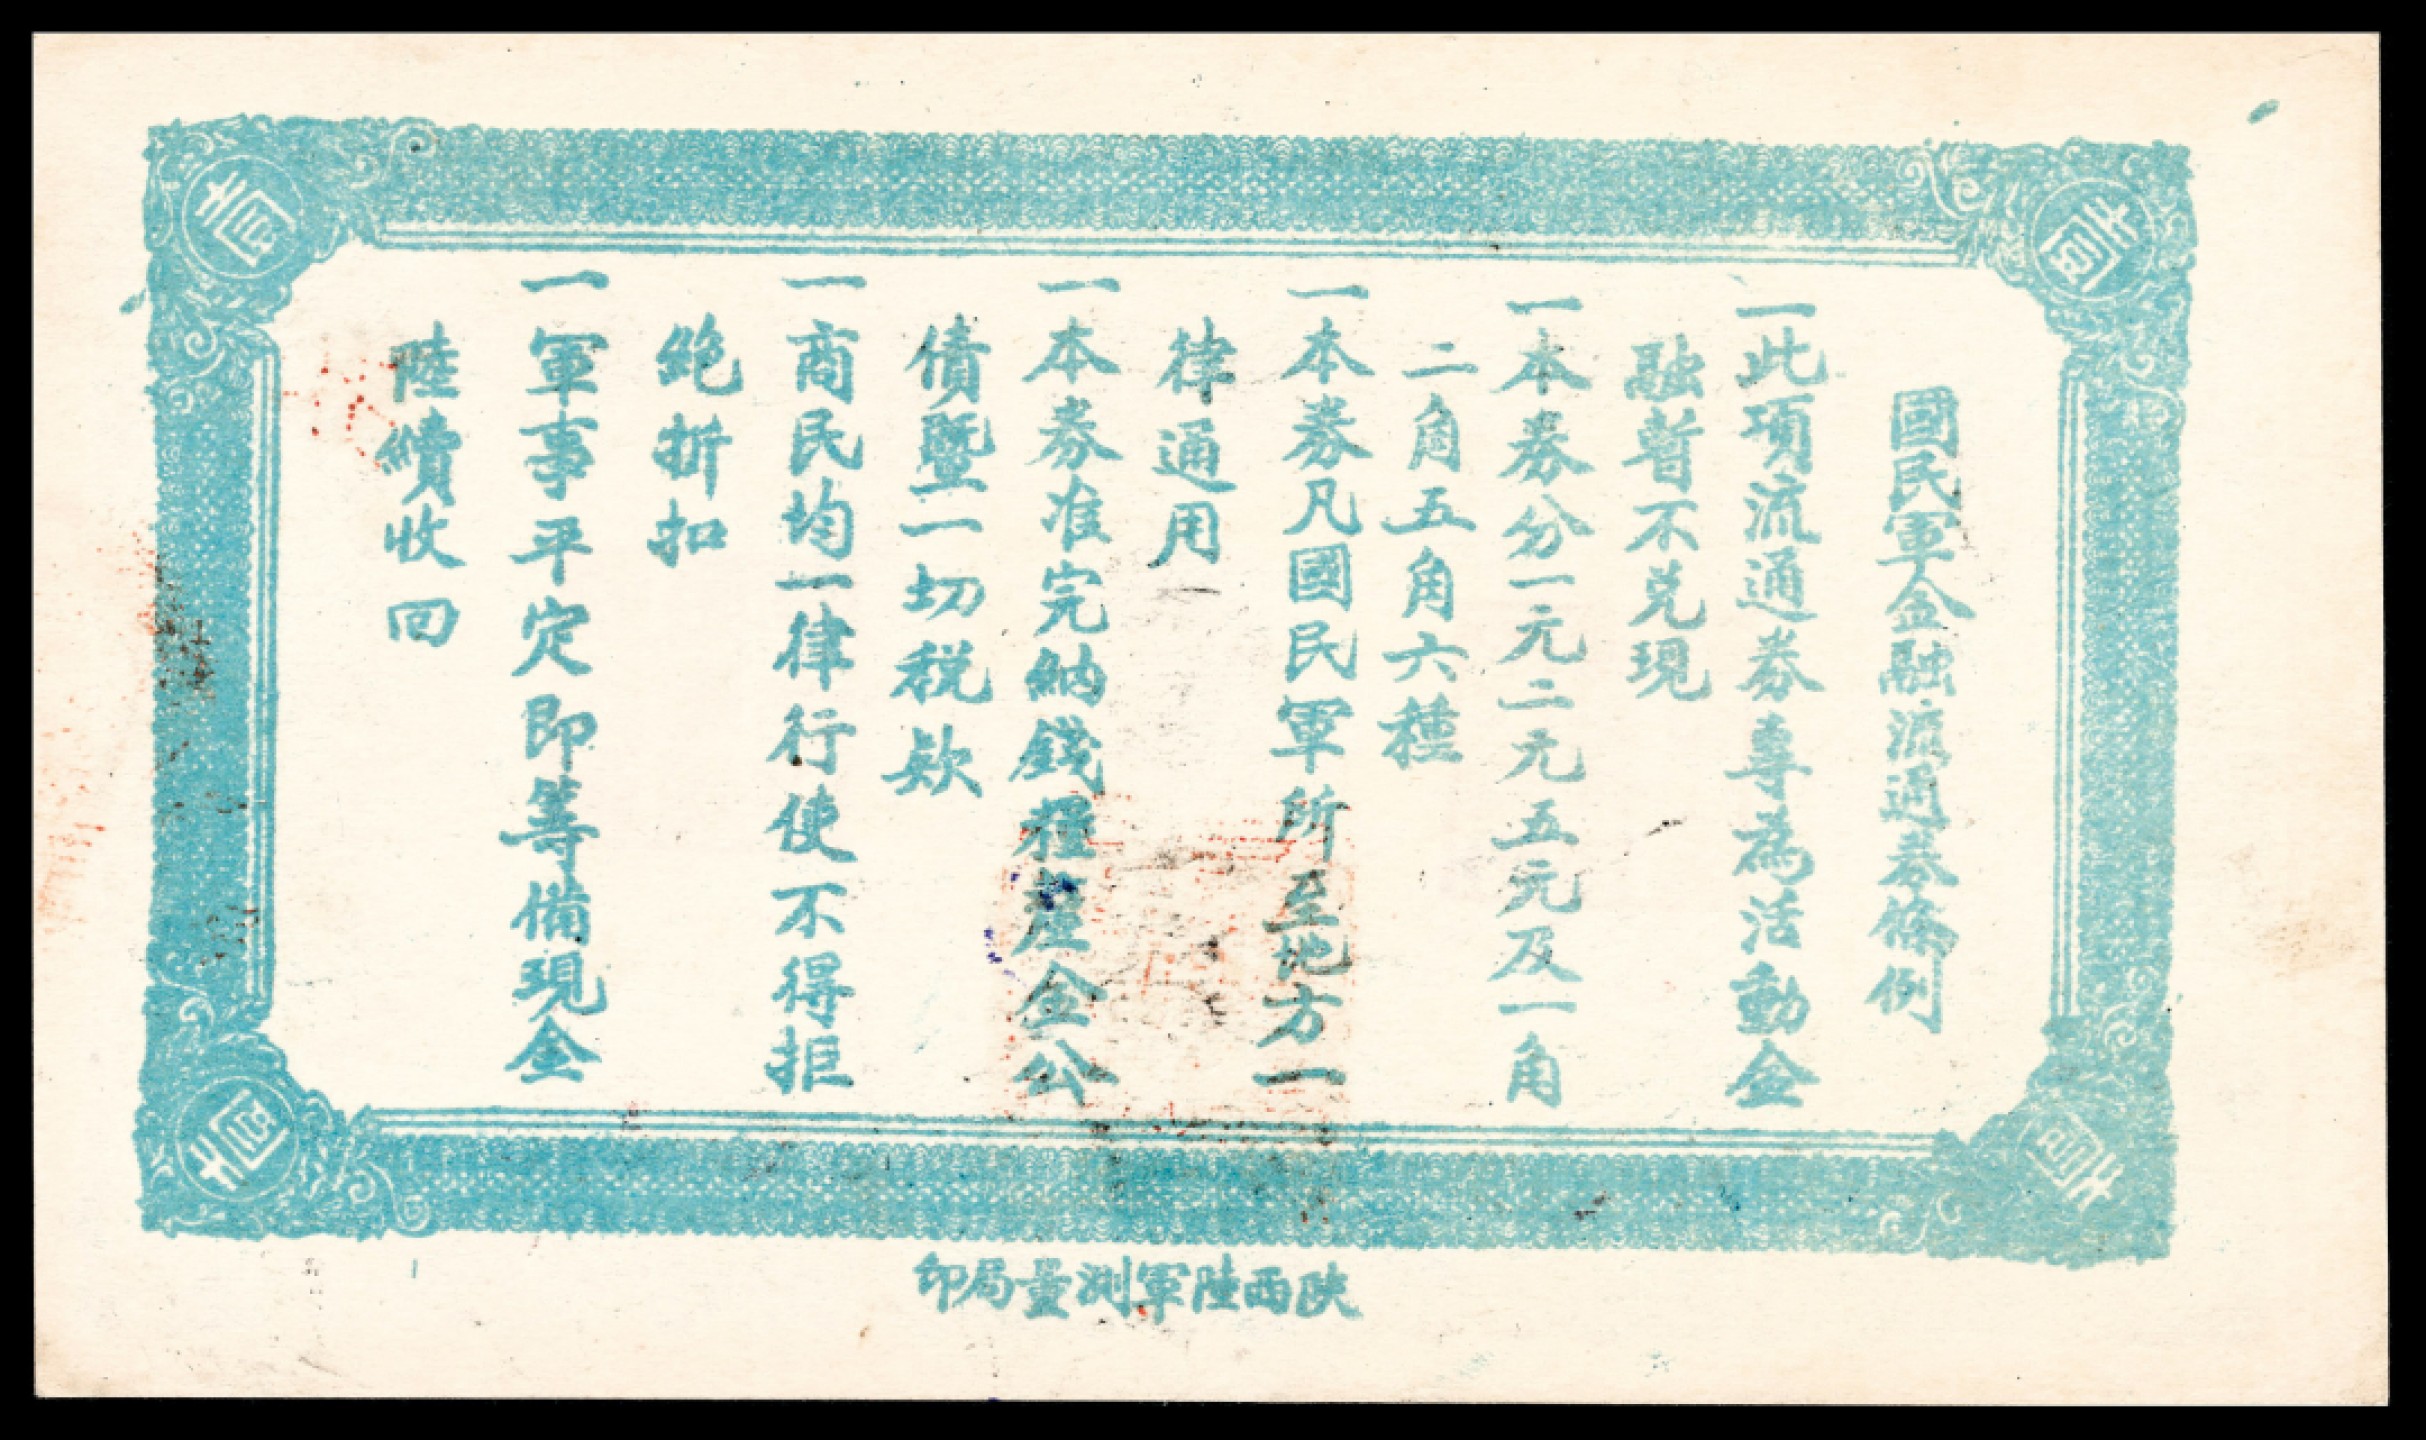 國民軍金融流通券條例
一此項流通券專為活動金
融暫不兌現
一本券分一元二元五元及一角
二角五角六種
一本券凡國民軍所至地方一
律通用
一本券准完納錢糧釐金公
債暨一切稅欵
一商民均一律行使不得拒
絶折扣
一軍事平定即籌備現金
陸續收回
陜西陸軍測量局印
壹
壹
壹
壹